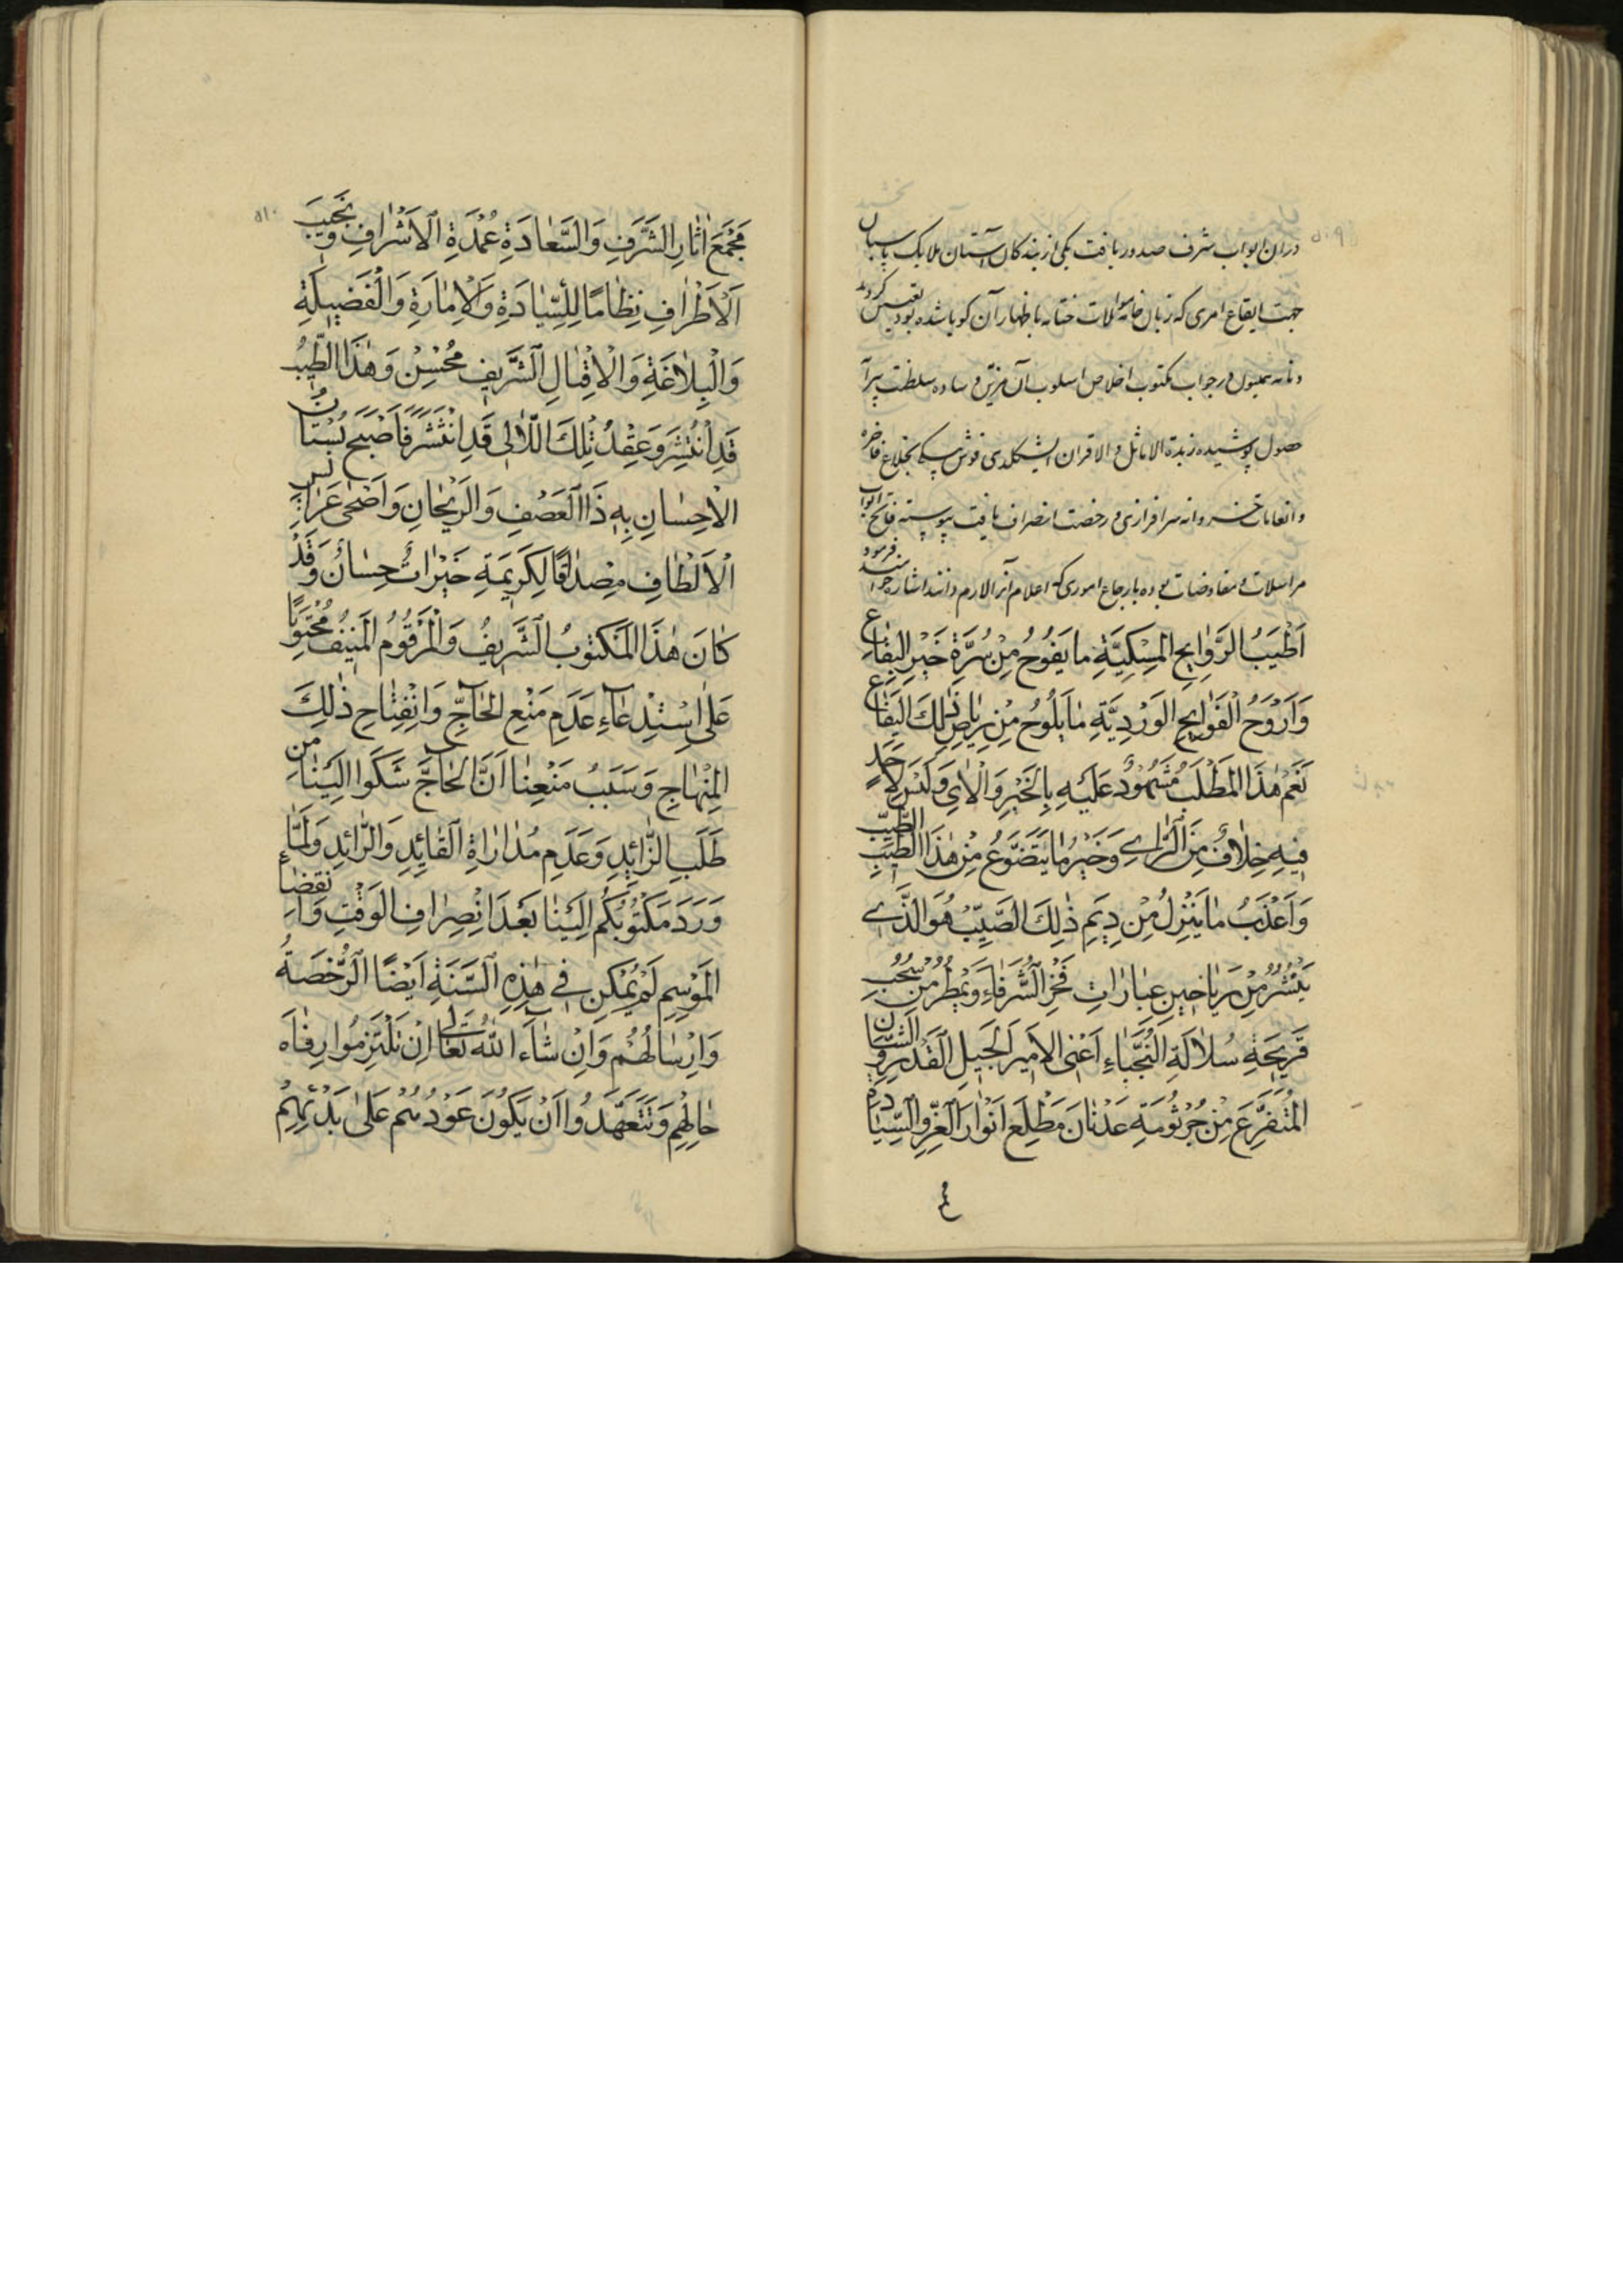 ۵۰۹
دران ابواب شرف صدور یافت یکی از بندکان آستان ملایک پاسبان
جهت ایقاع امری که زبان خامه موالات ختامه باظهار آن کویا شده بود تعیین کردید
ونامه همیون در جواب مکتوب اخلاص اسلوب آن مزین وساده سلطنت پیرآ
وصول پوشیده زبدة الاماثل والاقران ایشیکلدی قوش بیکی بخلاع فاخره
وانعامات خسروانه سرافرازی ورخصت انصراف یافت پیوسته فاتح ابواب
مراسلات ومفاوضات بوده بارجاع اموری که اعلام آنرا لازم دانند اشاره فرمود
اَطْيَبُ الرَّوٰايِحِ المِسْكِيَّةِ ما يَفُوحُ مِنْ سُرَّةِ خَيْرِ البِقٰاعِ
وَاَرْوَحُ الْفَوٰايِحِ الوَرْدِيَّةِ مٰا يَلُوحُ مِنْ رِيٰاضِ تِلْكَ البِقٰاعِ
نَعَمْ هٰذَا المَطْلَبُ مَشْهُودٌ عَلَيْهِ بِالْخَبَرِ وَالْاٰىِ وَلَيْسَ لِاَحَدٍ
فِيهِ خِلٰافٌ مِنَ الرّٰاىِ وَخَيْرُ مٰا يَتَضَوَّعُ مِنْ هٰذَا الطِّيبِ الطَّيِّبِ
وَاَعْذَبُ مٰا يَنْزِلُ مِنْ دِيَمِ ذٰلِكَ الصَّيِّبِ هُوَ الَّذِى
يَنْشُرُ مِنْ رَيٰاحِينِ عِبٰارٰاتِ فَخْرِ الشُّرَفٰاءِ وَيَمْطُرُ مِنْ سُحُبِ
قَرِيحَةِ سُلٰالَةِ النُّجَبٰاءِ اَعْنِى الاَمِيرَ الجَلِيلَ الْقَدْرِ وَالشَّانِ
المُتَفَرِّعَ مِنْ جُرْثُومَةِ عَدْنٰانَ مَطْلِعَ اَنْوٰارِ الْعِزِّ وَالسِّيٰادَةِ
۵۱۰
مَجْمَعَ اٰثٰارِ الشَّرَفِ وَالسَّعٰادَةِ عُمْدَةِ الاَشْرٰافِ وَنَجِيبَ
الْاَطْرٰافِ نِظٰامًا لِلسِّيٰادَةِ وَالْاِمٰارَةِ وَالْفَضِيلَةِ
وَالْبِلٰاغَةِ وَالْاِقْبٰالِ الشَّرِيفِ مُحْسِنْ وَهٰذَا الطِّيبُ
قَدِ انْتُشِرَ وَعِقْدُ تِلْكَ اللَّاٰلِى قَدِ انْتَثَرَ فَاَصْبَحَ بُسْتَانُ
الْاِحْسٰانِ بِهٖ ذَا الْعَصْفِ وَالرَّيْحٰانِ وَاَضْحٰى عَرٰائِسُ
الْاَلْطٰافِ مِصْدٰاقًا لِكَرِيمَةِ خَيْرٰاتٌ حِسٰانٌ وَقَدْ
كٰانَ هٰذَا المَكْتوُبُ الشَّرِيفُ وَالْمَرْقوُمُ المُنِيفُ مُحْتَوِيًا
عَلٰى اسْتِدْعٰاءِ عَدَمِ مَنْعِ الحٰاجِّ وَانْفِتٰاحِ ذٰلِكَ
المِنْهٰاجِ وَسَبَبُ مَنْعِنٰا اَنَّ الحٰاجَّ شَكَوا اِلَيْنٰا مِن
طَلَبِ الزّٰائِدِ وَعَدَمِ مُدٰارٰاةِ الْقٰايِدِ وَالرّٰائِدِ وَلَمّٰا
وَرَدَ مَكْتُوبُكُم اِلَيْنٰا بَعْدَ انْصِرٰافِ الوَقْتِ وَانْقِضٰاءِ
المَوْسِمِ لَمْ يُمْكِنِ فى هٰذِهِ السَّنَةِ اَيْضًا الرُّخْصَةُ
وَاِرْسٰالُهُم وَاِنْ شٰاءَ اللّٰهُ تَعٰالٰى اِنْ تَلْتَزِمُوا رِفٰاهَ
حٰالِهِم وَتَتَعَهَّدُوا اَنْ يَكُونَ عَوْدُهُم عَلٰى بَدْئِهِمْ